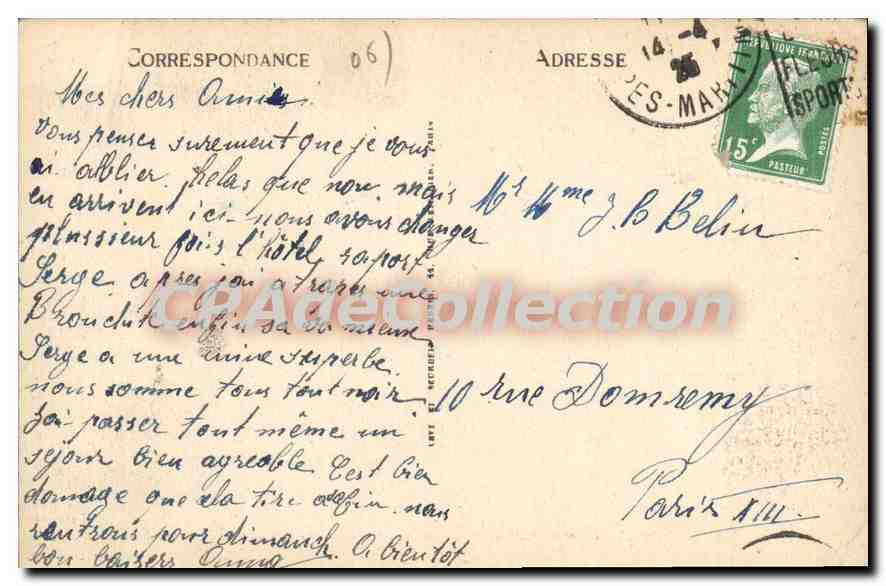 CORRESPONDANCE
06)
ADRESSE
14 -4
25
DES-MARIT
RÉPUBLIQUE FRANÇAISE
15c
POSTES
PASTEUR
FLEURS
SPORTS
Mes chers Amies
Vous penser surement que je vous
ai ablier helas que non mais
en arrivent ici nous avous changer
plussieur fois l'hôtel raport
Serge apres jai atraper une
Bronchite enfin sa va mieux
Serge a une mine superbe
nous somme tous tout noir
Jai passer tout même un
sejour bien agreable C'est bien
domage que sla tire afin nous
rentrons pour dimanch. A bientôt
bon baisers Anna
Mr Mme J B Belin
10 rue Domremy
Paris XIII
CPAdeCollection